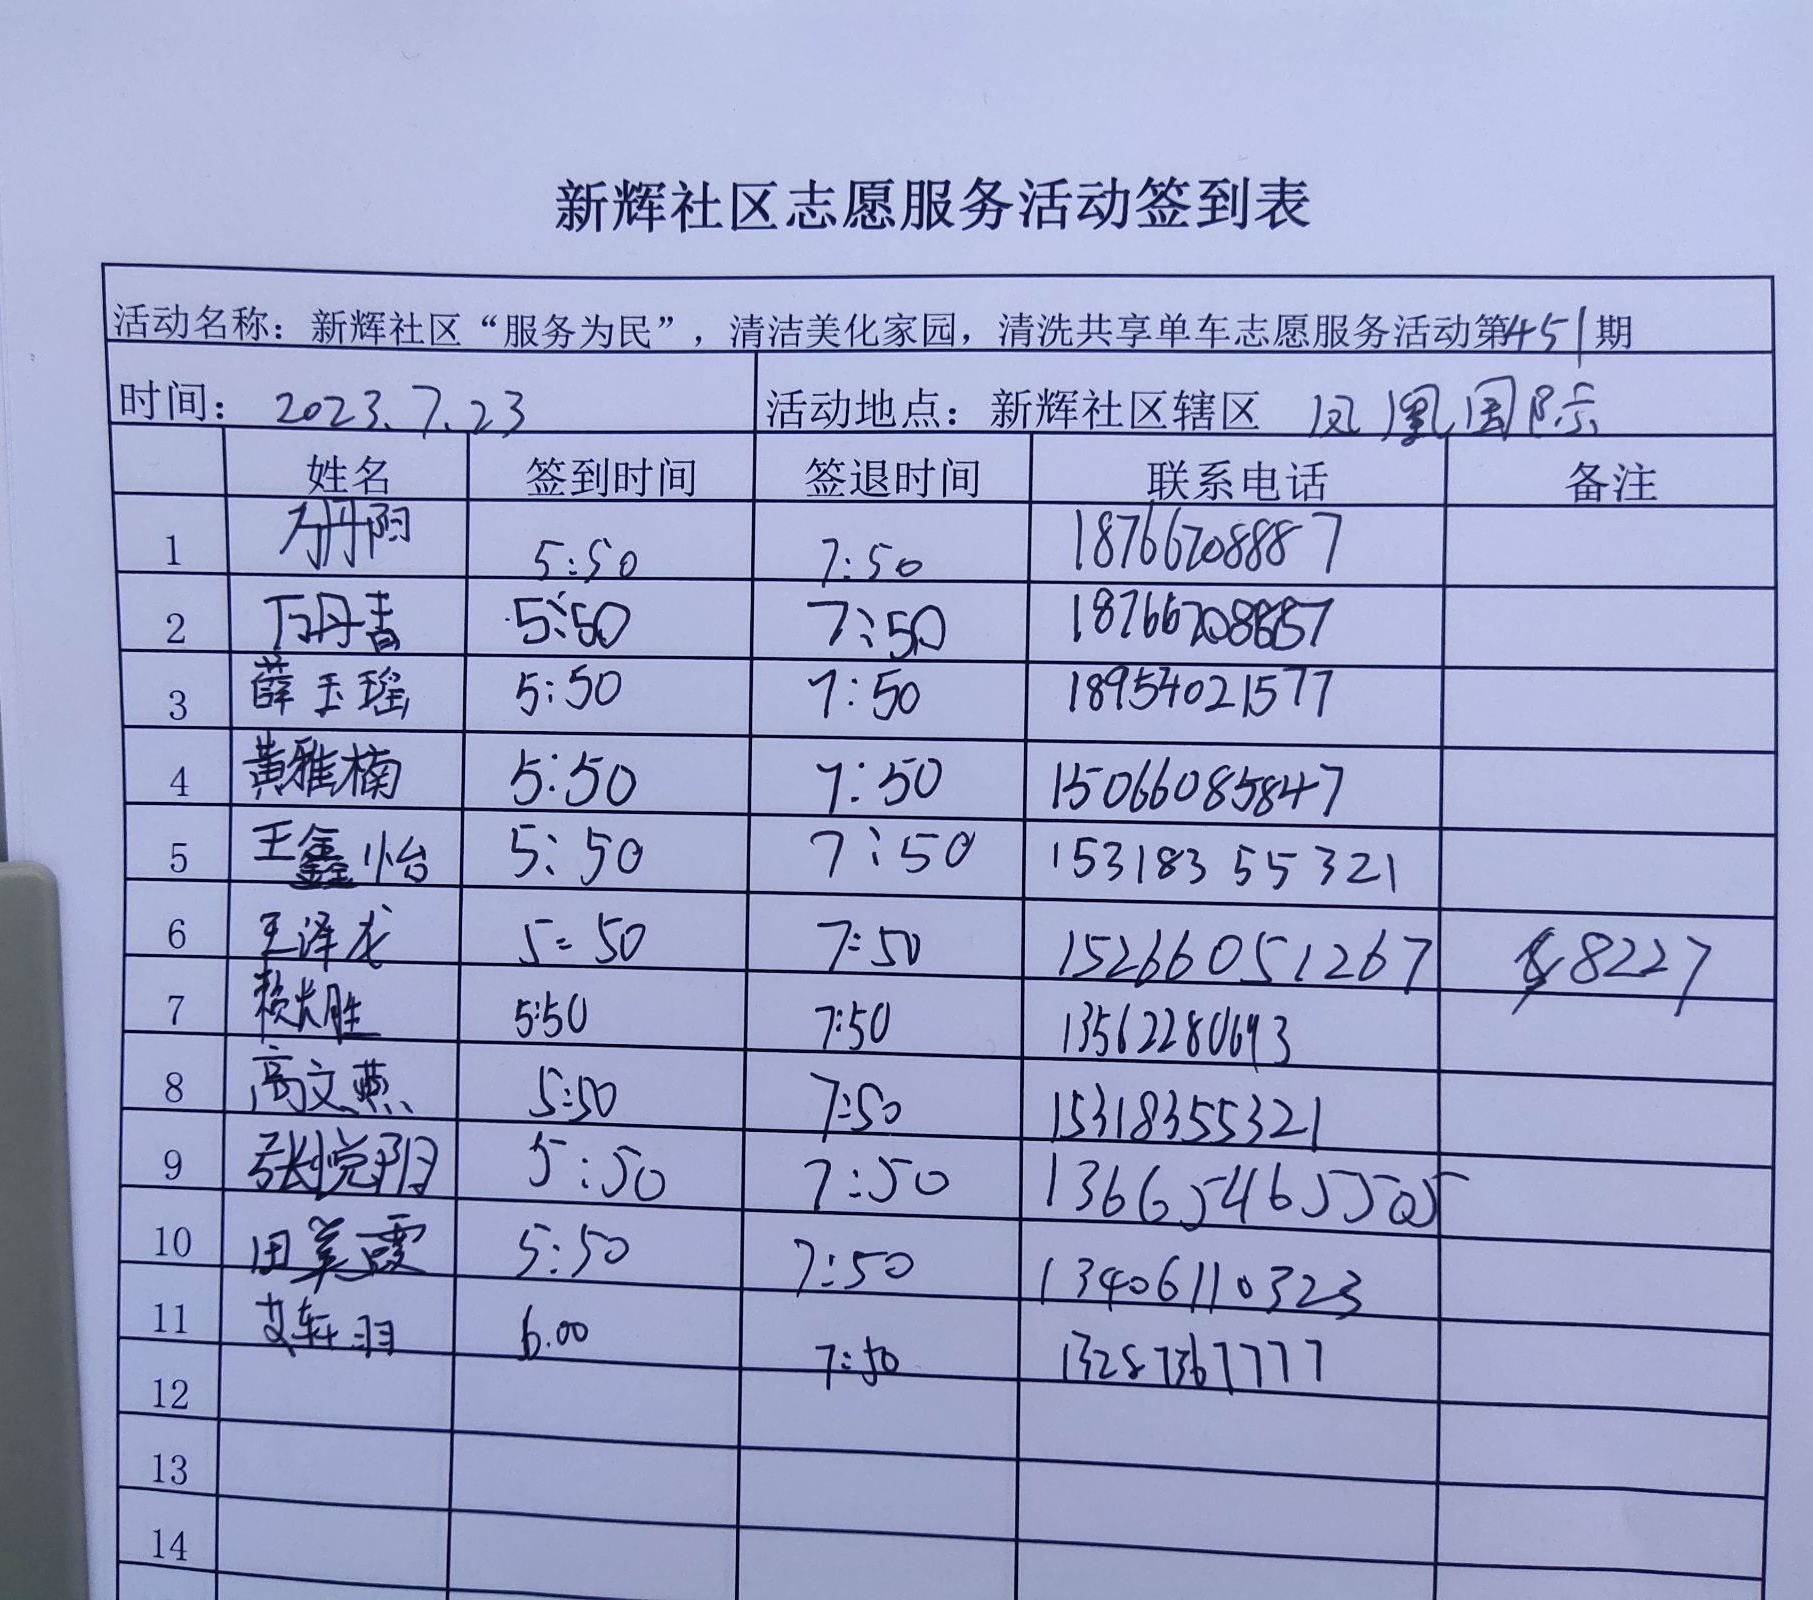 新辉社区志愿服务活动签到表
活动名称：新辉社区“服务为民”，清洁美化家园，清洗共享单车志愿服务活动第451期
时间：2023.7.23 活动地点：新辉社区辖区 凤凰国际
姓名 签到时间 签退时间 联系电话 备注
1 万丹阳 5:50 7:50 18766708887
2 万丹青 5:50 7:50 18766708887
3 薛玉瑶 5:50 7:50 18954021577
4 黄雅楠 5:50 7:50 15066085847
5 王鑫怡 5:50 7:50 15318355321
6 王泽龙 5:50 7:50 15266051267 8227
7 5:50 7:50 13562280693
8 高文燕 5:50 7:50 15318355321
9 张悦阳 5:50 7:50 13665465505
10 田美霞 5:50 7:50 13406110323
11 艾轩羽 6.00 7:50 13287367777
12
13
14